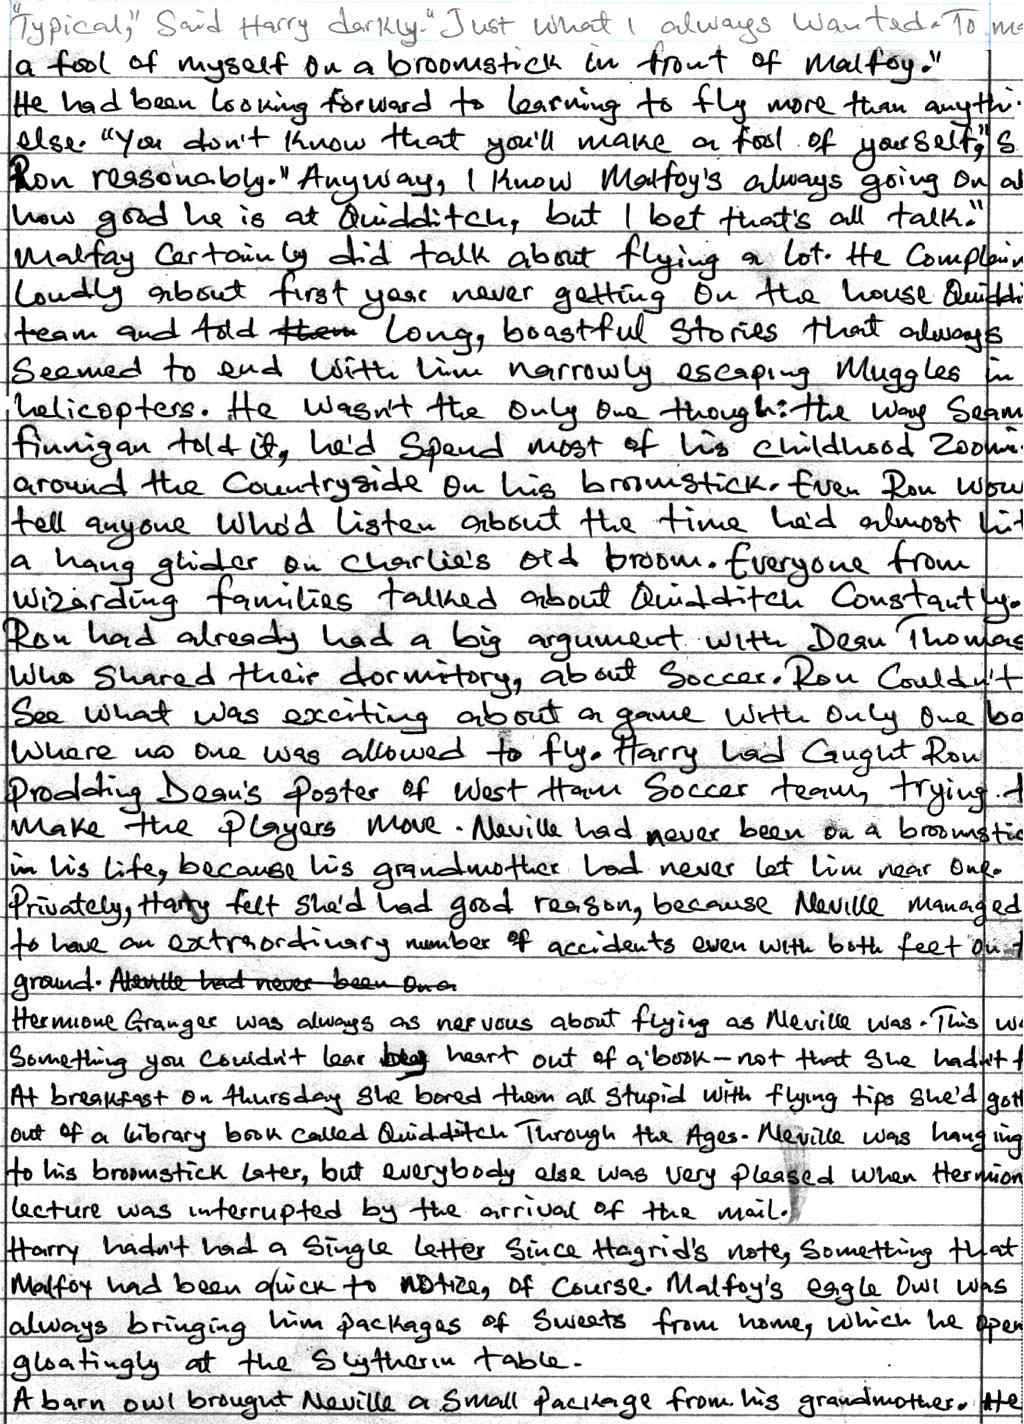 "Typical," Said Harry darkly. "Just what I always wanted. To m
a fool of myself on a broomstick in front of Malfoy."
He had been looking forward to learning to fly more than anythi
else. "You don't know that you'll make a fool of yourself," s
Ron reasonably." Anyway, I know Malfoy's always going on a
how good he is at Quidditch, but I bet that's all talk."
Malfay Certainly did talk about flying a lot. He Complain
Loudly about first year never getting on the house Quiddi
team and told them long, boastful Stories that always
Seemed to end With him narrowly escaping Muggles in
helicopters. He wasn't the only one though: the way Seam
finnigan told it, he'd Spend most of his childhood Zoomi
around the Countryside on his broomstick. Even Ron wou
tell anyone Who'd listen about the time he'd almost hit
a hang glider on Charlie's old broom. Everyone from
Wizarding families talked about Quidditch Constantly.
Ron had already had a big argument with Dean Thomas
Who Shared their dormitory, about Soccer. Ron Couldn't
See what was exciting about a game with only one ba
Where no one was allowed to fly. Harry had Caught Ron
Prodding Dean's Poster of West Ham Soccer team, trying t
make the players move. Neville had never been on a broomstic
in his life, because his grandmother had never let him near one.
Privately, Harry felt She'd had good reason, because Neville managed
to have an extraordinary number of accidents even with both feet on t
ground. Neville had never been on a
Hermione Granger was always as nervous about flying as Neville was. This w
Something you Couldn't lear by heart out of a book - not that She hadn't t
At breakfast on thursday She bored them all Stupid with flying tips She'd gott
out of a library book called Quidditch Through the Ages. Neville was hanging
to his broomstick later, but everybody else was very pleased when Hermion
lecture was interrupted by the arrival of the mail.
Harry hadn't had a Single letter Since Hagrid's note, Something that
Malfoy had been quick to notize, of Course. Malfoy's eagle Owl was
always bringing him packages of Sweets from home, which he open
gloatingly at the Slytherin table.
A barn owl brought Neville a Small Package from his grandmother. He